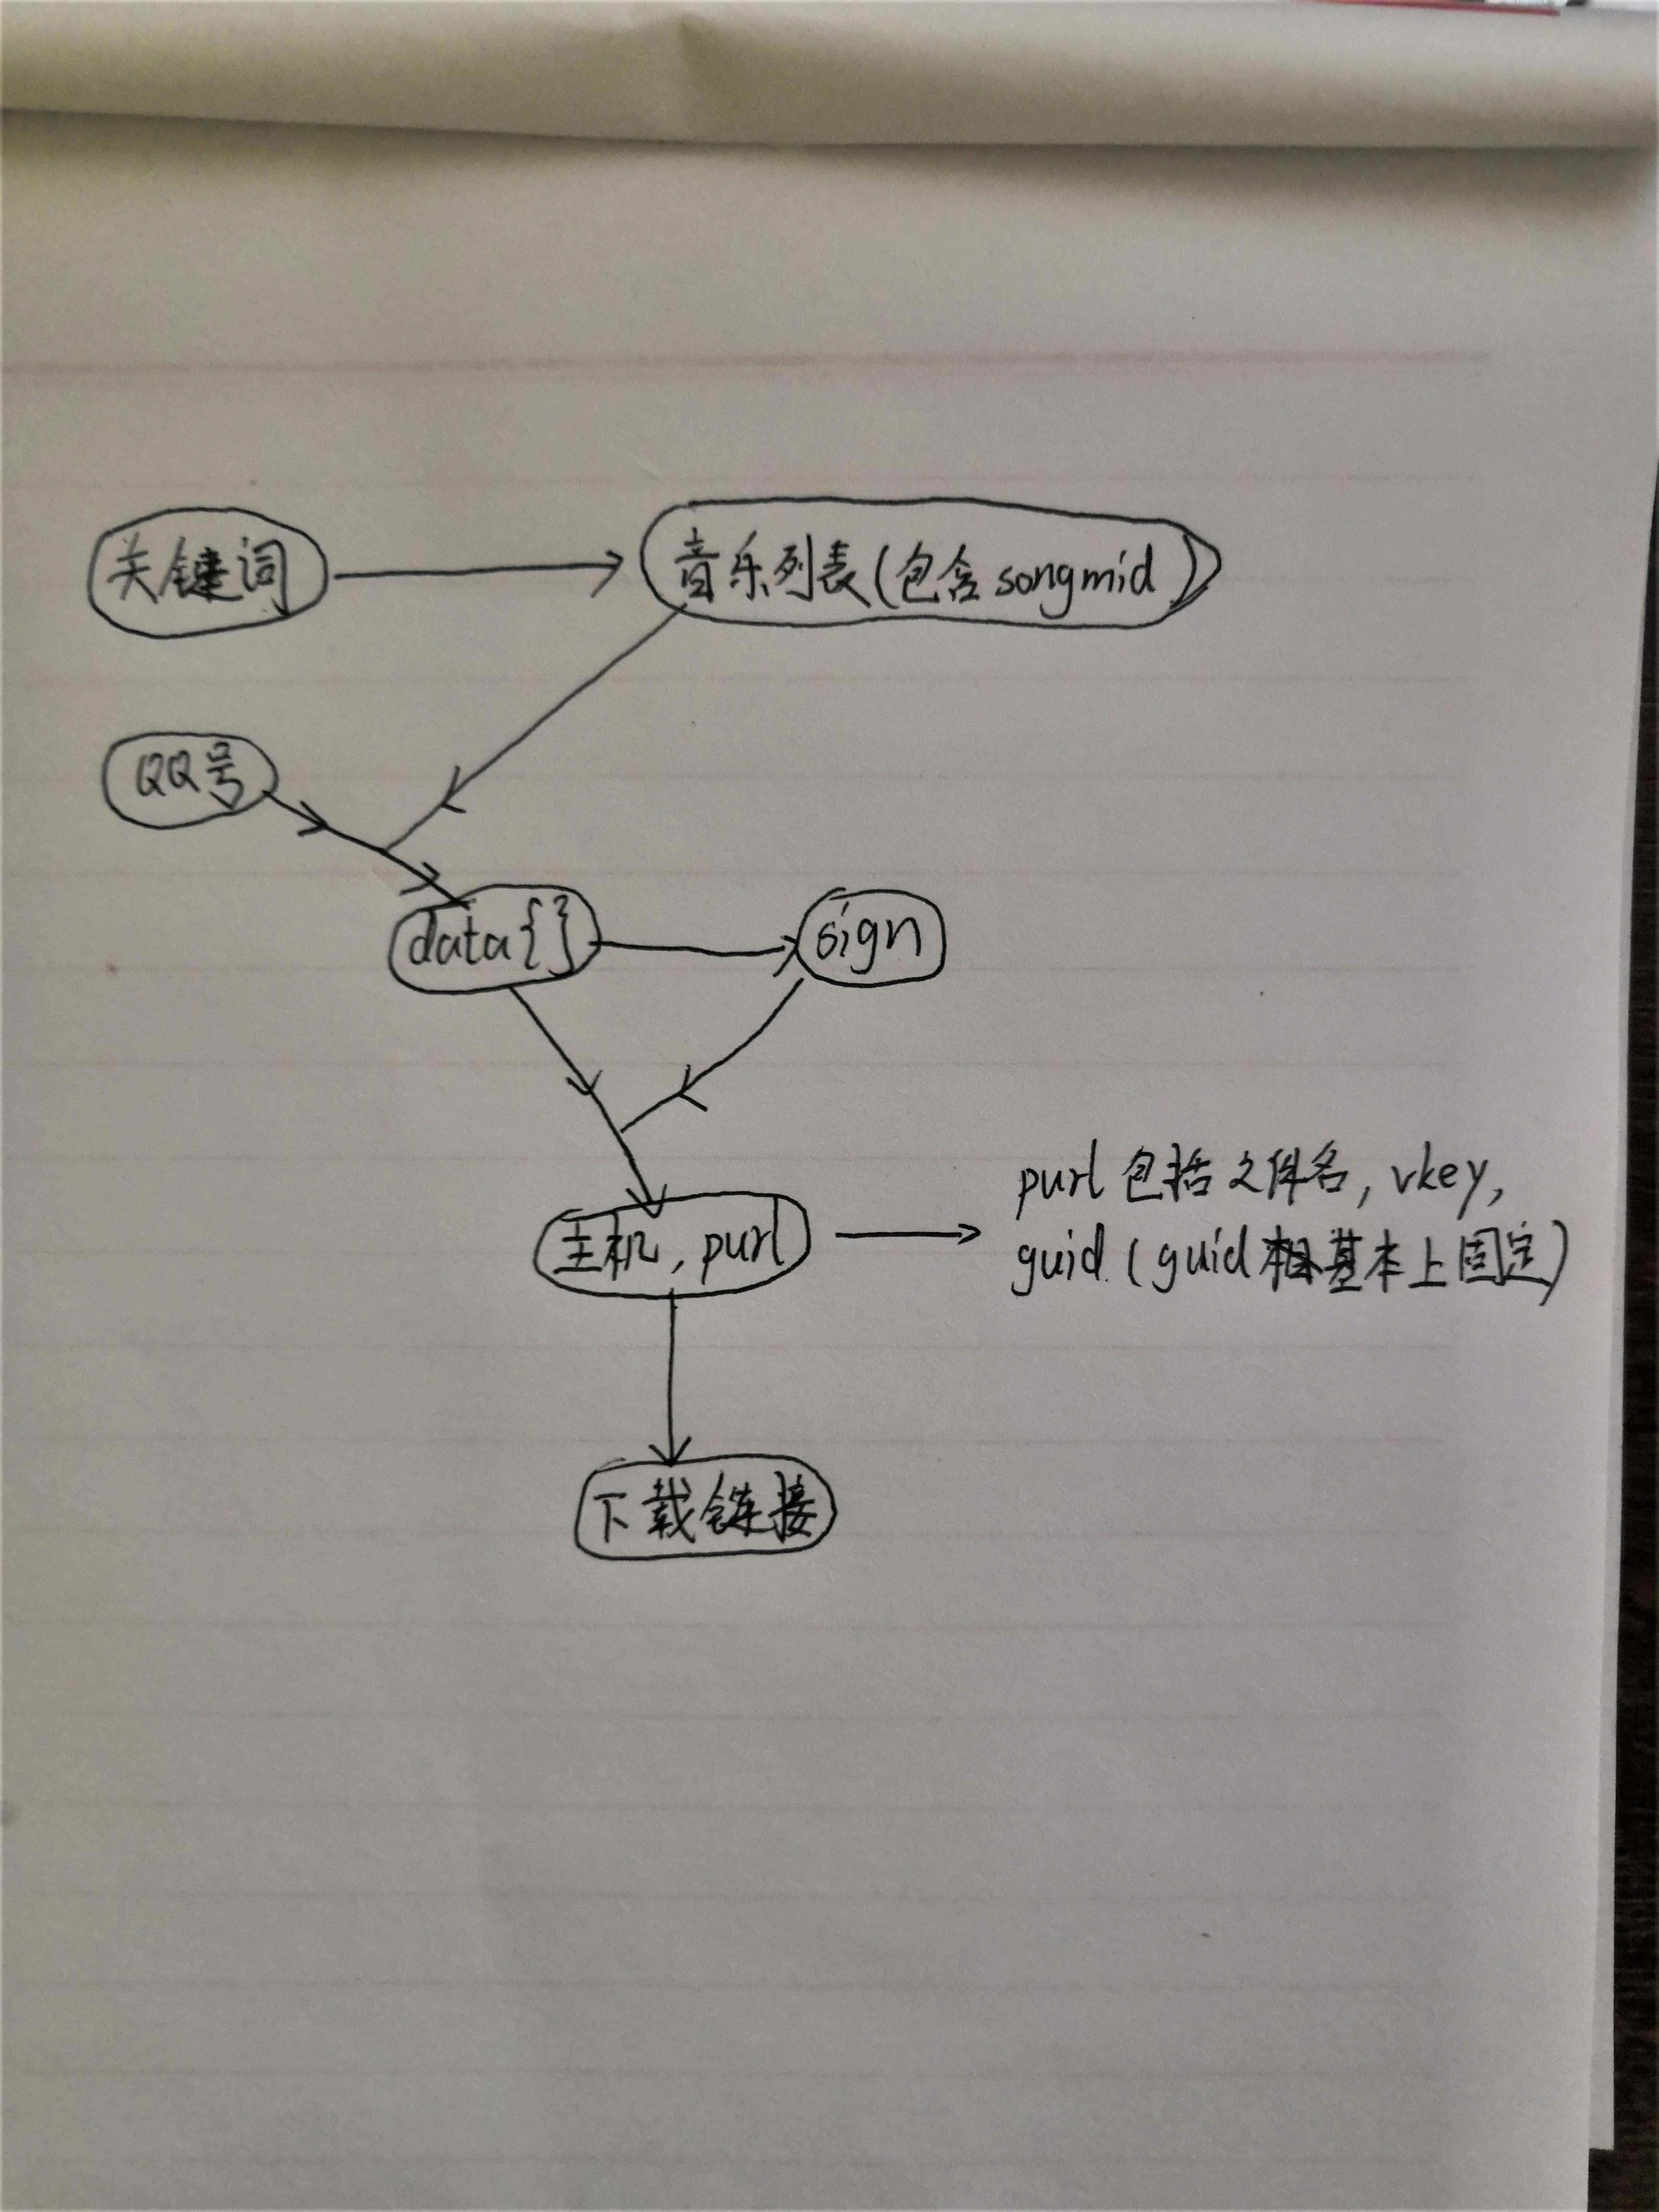 关键词
音乐列表(包含songmid)
QQ号
data{}
sign
主机,purl
purl包括文件名,vkey,
guid.(guid基本上固定)
下载链接